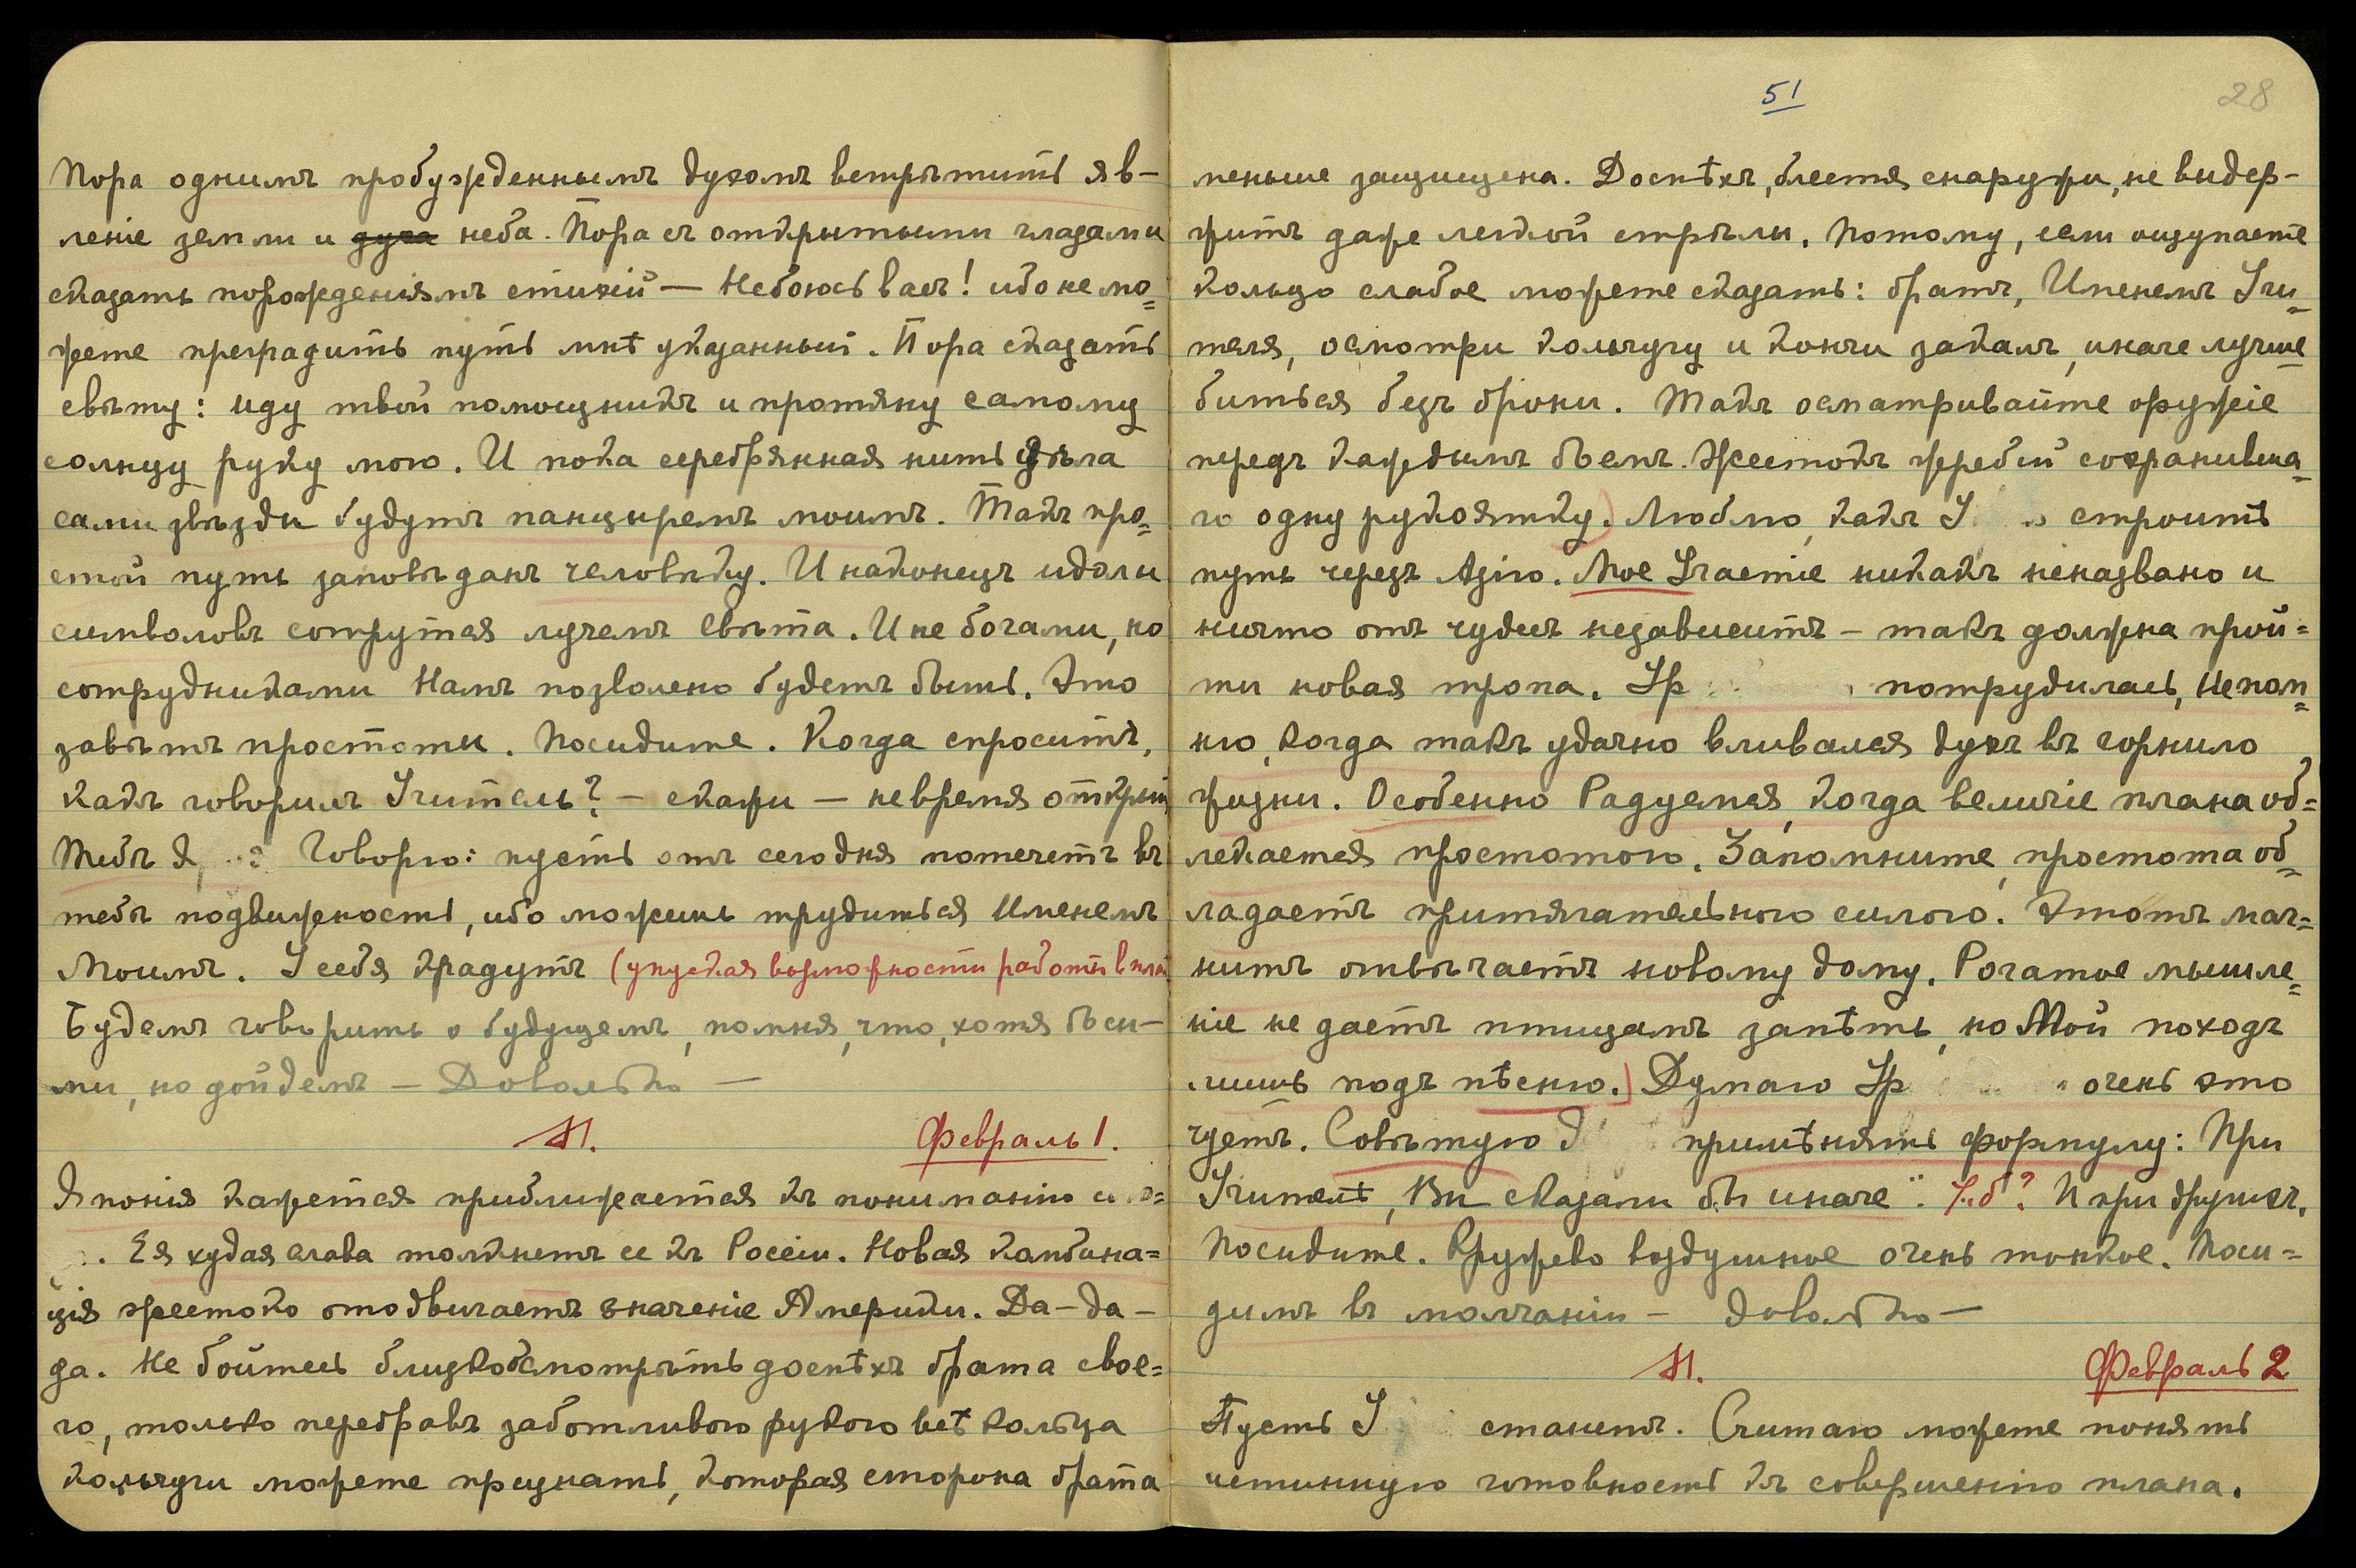 Пора однимъ пробужденнымъ духомъ встрѣтить яв-
леніе земли и духа неба. Пора съ открытыми глазами
сказать порожденіямъ стихій — Не боюсь васъ! ибо не мо=
жете преградить путь мнѣ указанный. Пора сказать
свѣту: иду твой помощникъ и протяну самому
солнцу руку мою. И пока серебрянная нить цѣла
сами звѣзды будутъ панцыремъ моимъ. Такъ про=
стой путь заповѣданъ человѣку. И наконецъ идолы
символовъ сотрутся лучемъ Свѣта. И не богами, но
сотрудниками Намъ позволено будетъ быть. Это
завѣтъ простоты. Посидите. Когда спроситъ,
какъ говорилъ Учитель? — скажи — не время открыт
Тебѣ Говорю: пусть отъ сегодня потечетъ въ
тебѣ подвижность, ибо можешь трудиться Именемъ
Моимъ. У себя крадутъ (упуская возможности работы в
Будемъ говорить о будущемъ, помня, что, хотя босы-
ми, но дойдемъ — Довольно —
М. Февраль 1.
Японія кажется приближается къ пониманію
. Ея худая слава толкнетъ ее къ Россіи. Новая комбина=
ція жестоко отодвигаетъ значеніе Америки. Да-да-
да. Не бойтесь близко осмотрѣть доспѣхъ брата свое=
го, только перебравъ заботливою рукою всѣ кольца
кольчуги можете признать, которая сторона брата
51 28
меньше защищена. Доспѣхъ, блестя снаружи, не выдер-
житъ даже легкой стрѣлы. Потому, если ощупаете
кольцо слабое можете сказать: братъ, Именемъ Учи=
теля, осмотри кольчугу и кончи закалъ, иначе лучше
биться безъ брони. Такъ осматривайте оружіе
передъ каждымъ боемъ. Жестокъ жребій сохранивша=
го одну рукоятку.) Люблю, какъ У строитъ
путь черезъ Азію. Мое Участіе никакъ не названо и
ничто отъ чудесъ не зависитъ — такъ должна прой=
ти новая тропа. Ур потрудилась, Не пом=
ню, когда такъ удачно вливался духъ въ горнило
жизни. Особенно Радуемся, когда величіе плана об=
лекается простотою. Запомните, простота об=
ладаетъ притягательною силою. Этотъ маг=
нитъ отвѣчаетъ новому дому. Рогатое мышле=
ніе не даетъ птицамъ запѣть, но Мой походъ
лишь подъ пѣсню.) Думаю Ур очень это
чуетъ. Совѣтую примѣнять формулу: При
Учителѣ, Вы сказали бы иначе". И при другихъ.
Посидите. Кружево воздушное очень тонкое. Поси=
димъ въ молчаніи — Довольно —
М. Февраль 2
Пусть У станетъ. Считаю можете понять
истинную готовность къ совершенію плана.